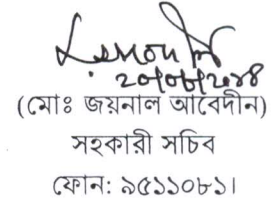 (মোঃ জয়নাল আবেদীন)
সহকারী সচিব
ফোন: ৯৫১১০৮১।